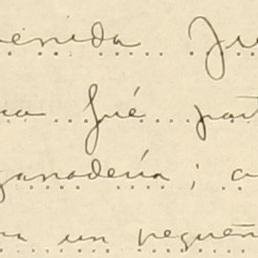 enida Ju
na fué part
ganadería; a
ra un pequeñ